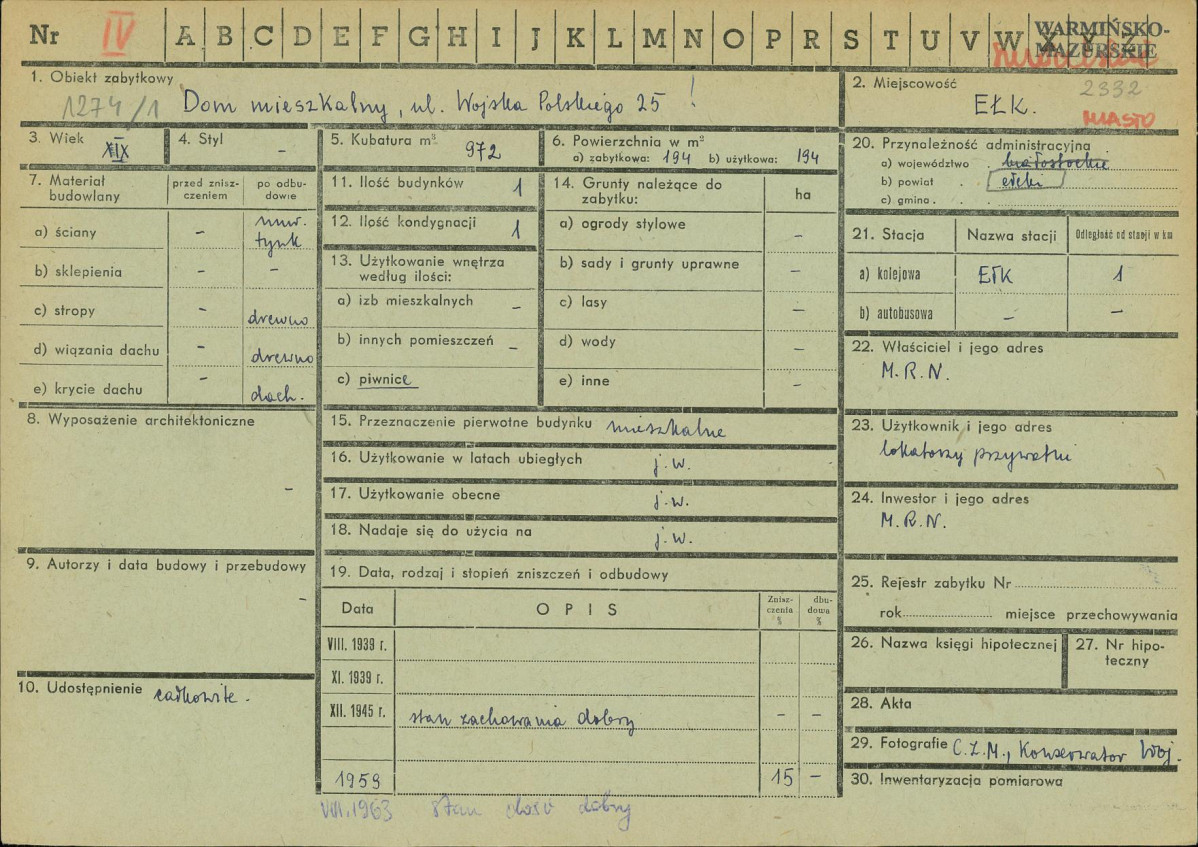 Nr IV A B C D E F G H I J K L M N O P R S T U V W X Y Z
WARMIŃSKO-
MAZURSKIE
1. Obiekt zabytkowy
1274/1 Dom mieszkalny, ul. Wojska Polskiego 25 !
2. Miejscowość 2332
EŁK. MIASTO
3. Wiek XIX
4. Styl -
5. Kubatura m³ 972
6. Powierzchnia w m²
a) zabytkowa: 194 b) użytkowa: 194
7. Materiał budowlany
przed zniszczeniem
po odbudowie
a) ściany - mur. tynk
b) sklepienia - -
c) stropy - drewno
d) wiązania dachu - drewno
e) krycie dachu - dach.
8. Wyposażenie architektoniczne
-
9. Autorzy i data budowy i przebudowy
-
10. Udostępnienie całkowite.
11. Ilość budynków 1
12. Ilość kondygnacji 1
13. Użytkowanie wnętrza
według ilości:
a) izb mieszkalnych -
b) innych pomieszczeń -
c) piwnice
14. Grunty należące do
zabytku: ha
a) ogrody stylowe -
b) sady i grunty uprawne -
c) lasy -
d) wody -
e) inne -
15. Przeznaczenie pierwotne budynku mieszkalne
16. Użytkowanie w latach ubiegłych j.w.
17. Użytkowanie obecne j.w.
18. Nadaje się do użycia na j.w.
19. Data, rodzaj i stopień zniszczeń i odbudowy
Data OPIS Zniszczenia % dbudowa %
VIII. 1939 r.
XI. 1939 r.
XII. 1945 r. stan zachowania dobry - -
1959 15 -
VIII.1963 stan dość dobry
20. Przynależność administracyjna
a) województwo . białostockie
b) powiat . ełcki
c) gmina . .
21. Stacja Nazwa stacji Odległość od stacji w km
a) kolejowa EŁK 1
b) autobusowa - -
22. Właściciel i jego adres
M.R.N.
23. Użytkownik i jego adres
lokatorzy prywatni
24. Inwestor i jego adres
M.R.N.
25. Rejestr zabytku Nr
rok miejsce przechowywania
26. Nazwa księgi hipotecznej
27. Nr hipoteczny
28. Akta
29. Fotografie C.Z.M., Konserwator Woj.
30. Inwentaryzacja pomiarowa